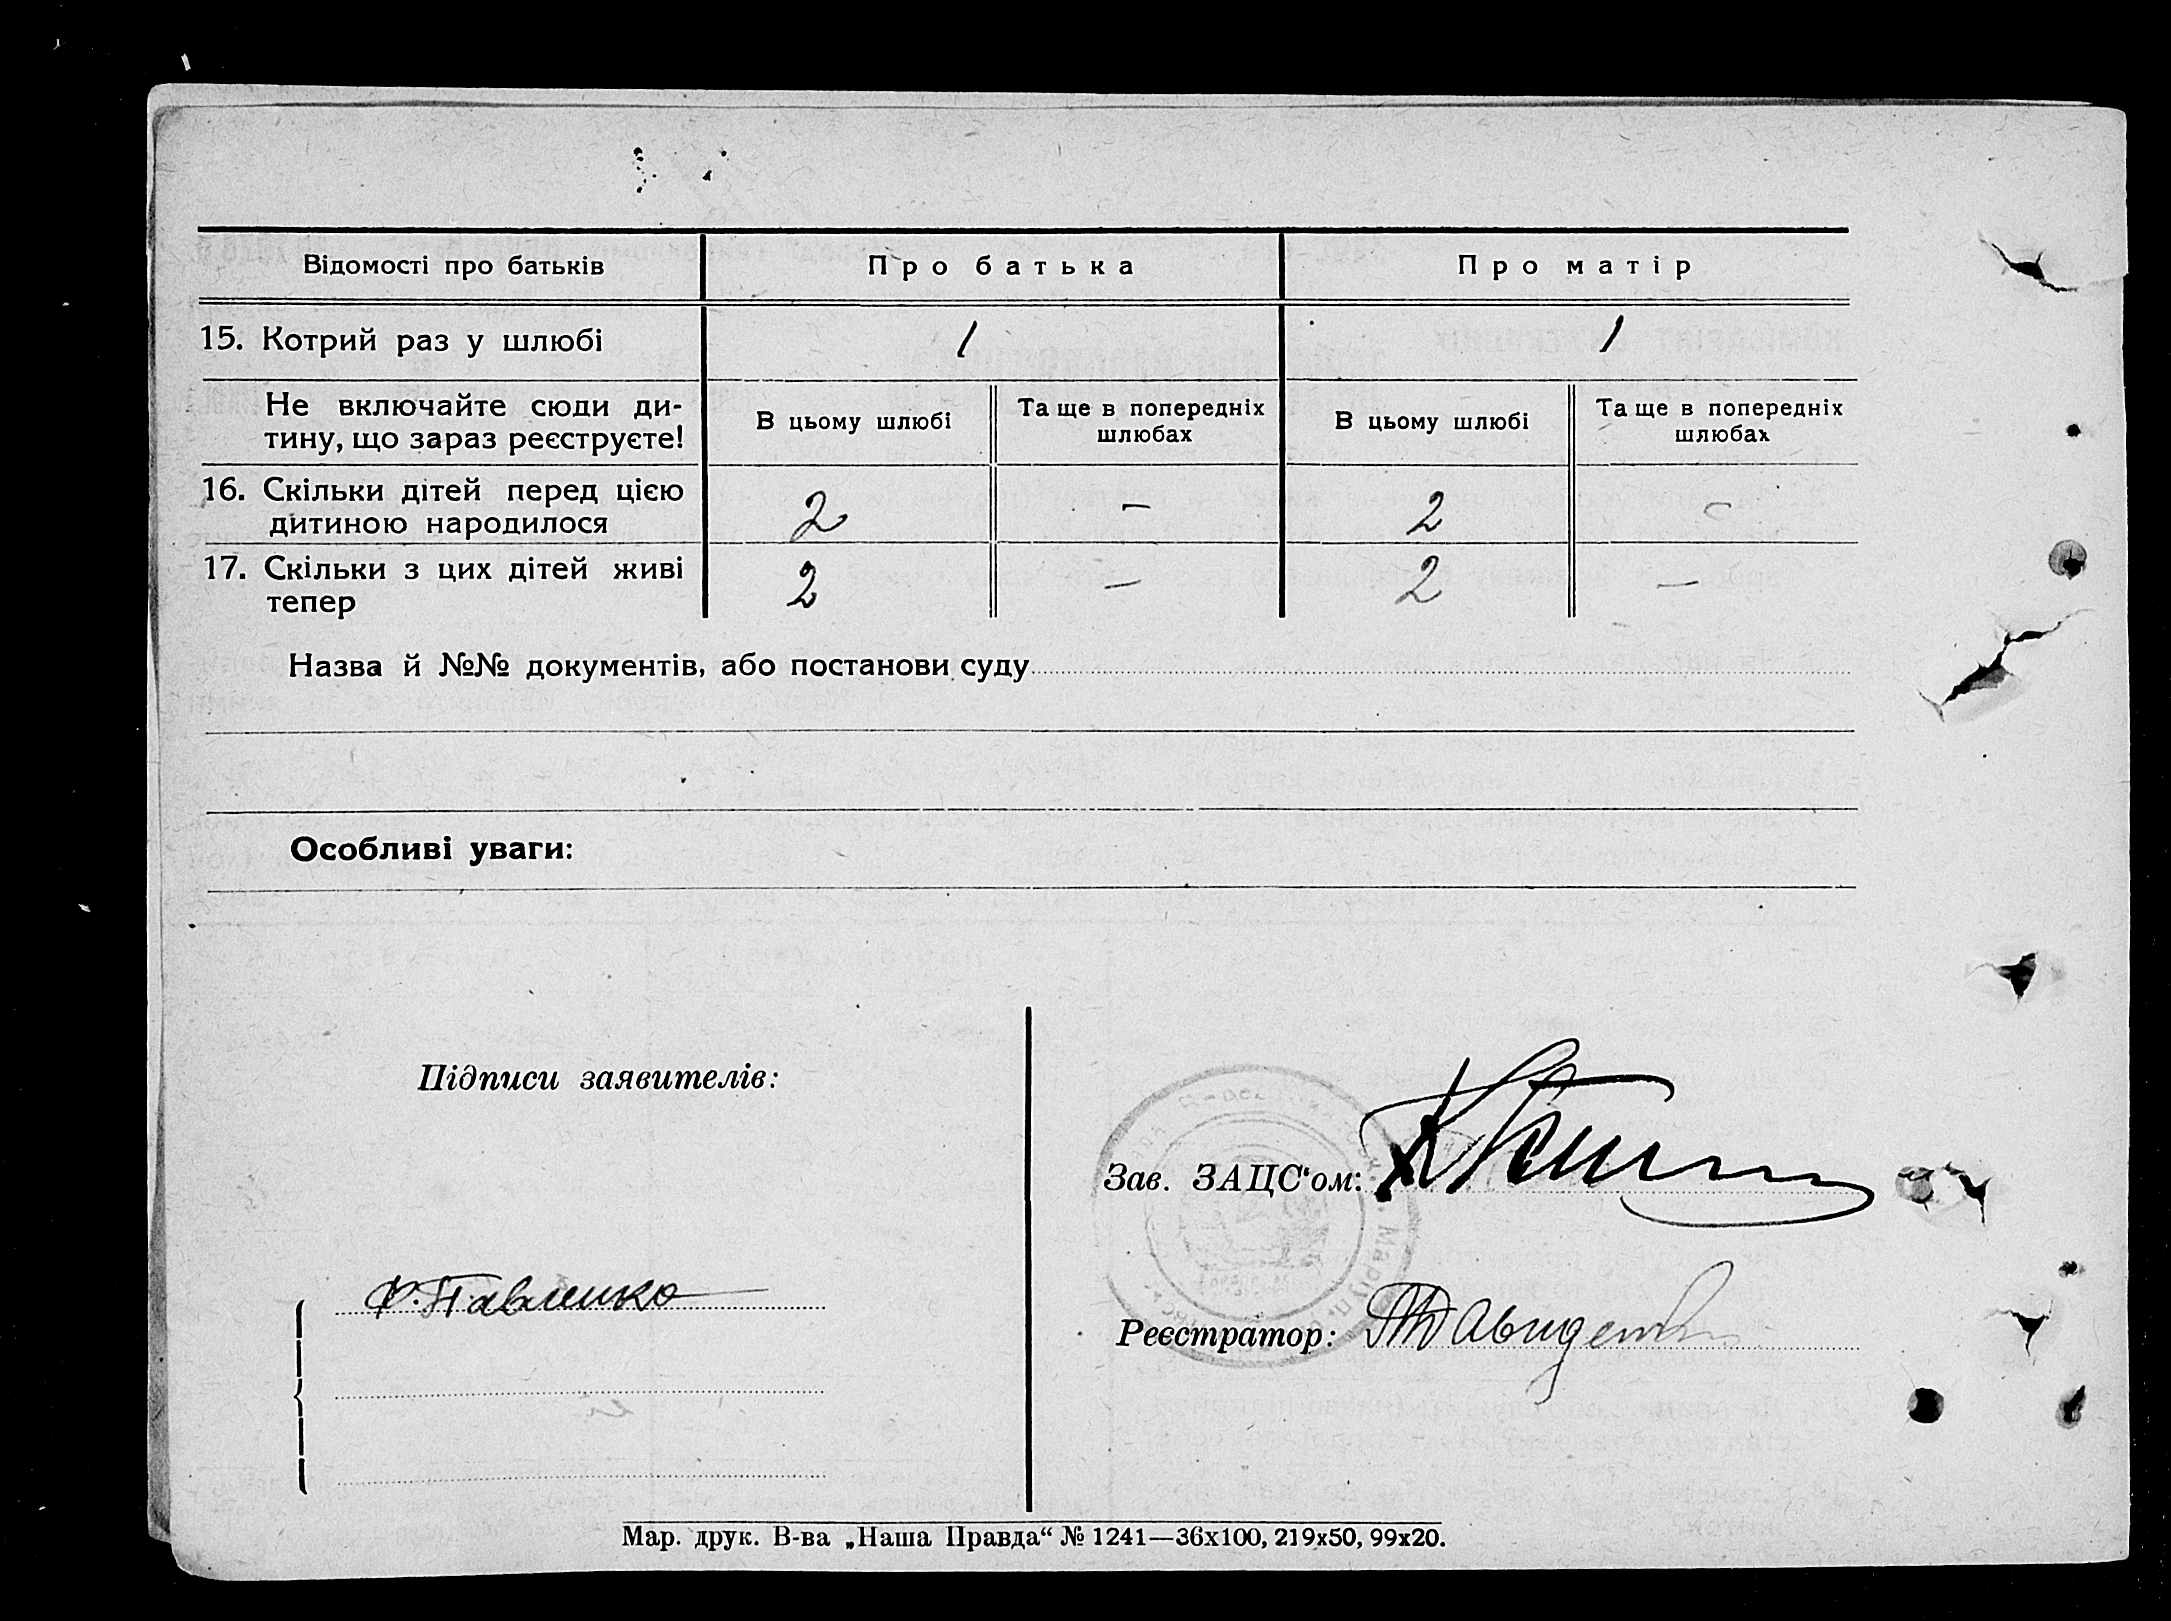 Відомості про батьків Про батька Про матір
15. Котрий раз у шлюбі 1 1
Не включайте сюди ди-
тину, що зараз реєструєте!
В цьому шлюбі Та ще в попередніх В цьому шлюбі Та ще в попередніх
шлюбах шлюбах
16. Скільки дітей перед цією
дитиною народилося 2 – 2 –
17. Скільки з цих дітей живі
тепер 2 – 2 –
Назва й №№ документів, або постанови суду
Особливі уваги:
Підписи заявителів:
Зав. ЗАЦС‘ом:
Ф. Павленко
Реєстратор:
Мар. друк. В-ва „Наша Правда“ № 1241—36х100, 219х50, 99х20.